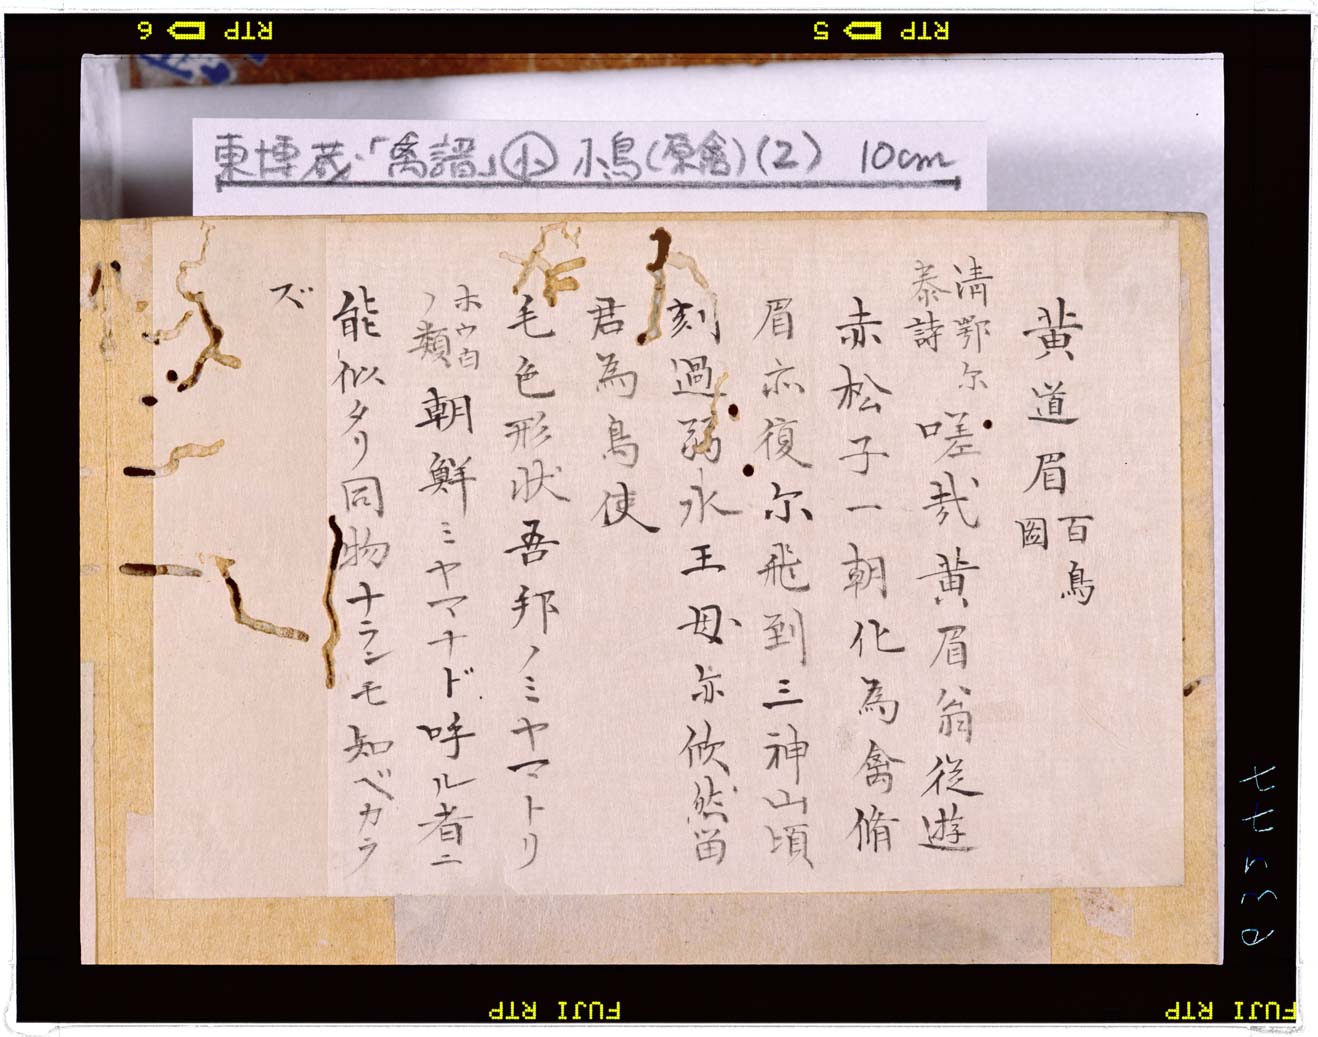 6 RTP
5 RTP
東博蔵「禽譜」小 小鳥(原禽)(2) 10cm
黄道眉 百鳥
圖
清鄂尓
泰詩
嗟哉黄眉翁従遊
赤松子一朝化為禽脩
眉亦復尓飛到三神山頃
刻過弱水王母亦欣然留
君為鳥使
毛色形状吾邦ノミヤマトリ
ホウ白
ノ類
朝鮮ミヤマナド呼ル者ニ
能似タリ同物ナランモ知ベカラ
ズ
FUJI RTP
FUJI RTP